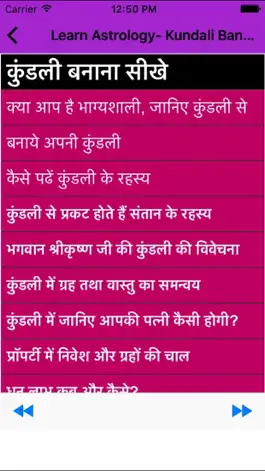 Carrier 12:50 PM
Learn Astrology- Kundali Ban...
कुंडली बनाना सीखे
क्या आप है भाग्यशाली, जानिए कुंडली से
बनाये अपनी कुंडली
कैसे पढें कुंडली के रहस्य
कुंडली से प्रकट होते हैं संतान के रहस्य
भगवान श्रीकृष्ण जी की कुंडली की विवेचना
कुंडली में ग्रह तथा वास्तु का समन्वय
कुंडली में जानिए आपकी पत्नी कैसी होगी?
प्रॉपर्टी में निवेश और ग्रहों की चाल
धन लाभ कब और कैसे?